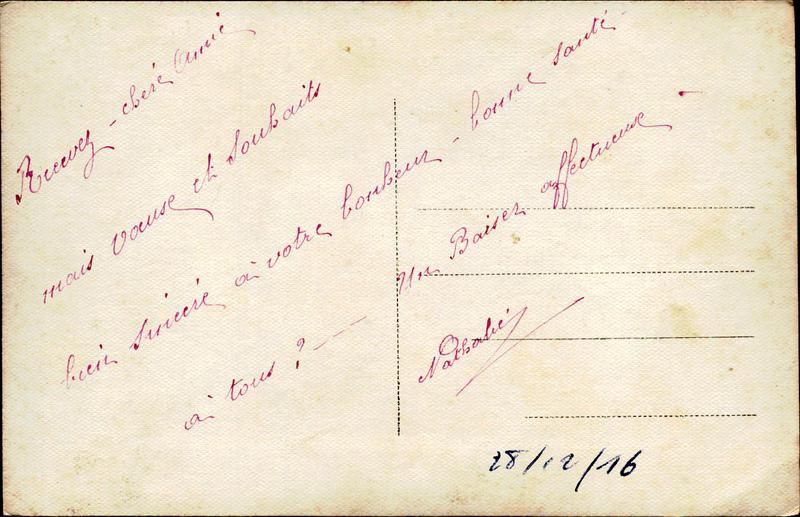 Recevez - chère Amie
mais vœuse et Souhaits
bien sincère à votre bonheur - bonne santé -
à tous ? - -
Un Baiser affectueuse -
Nathalie
28/12/16